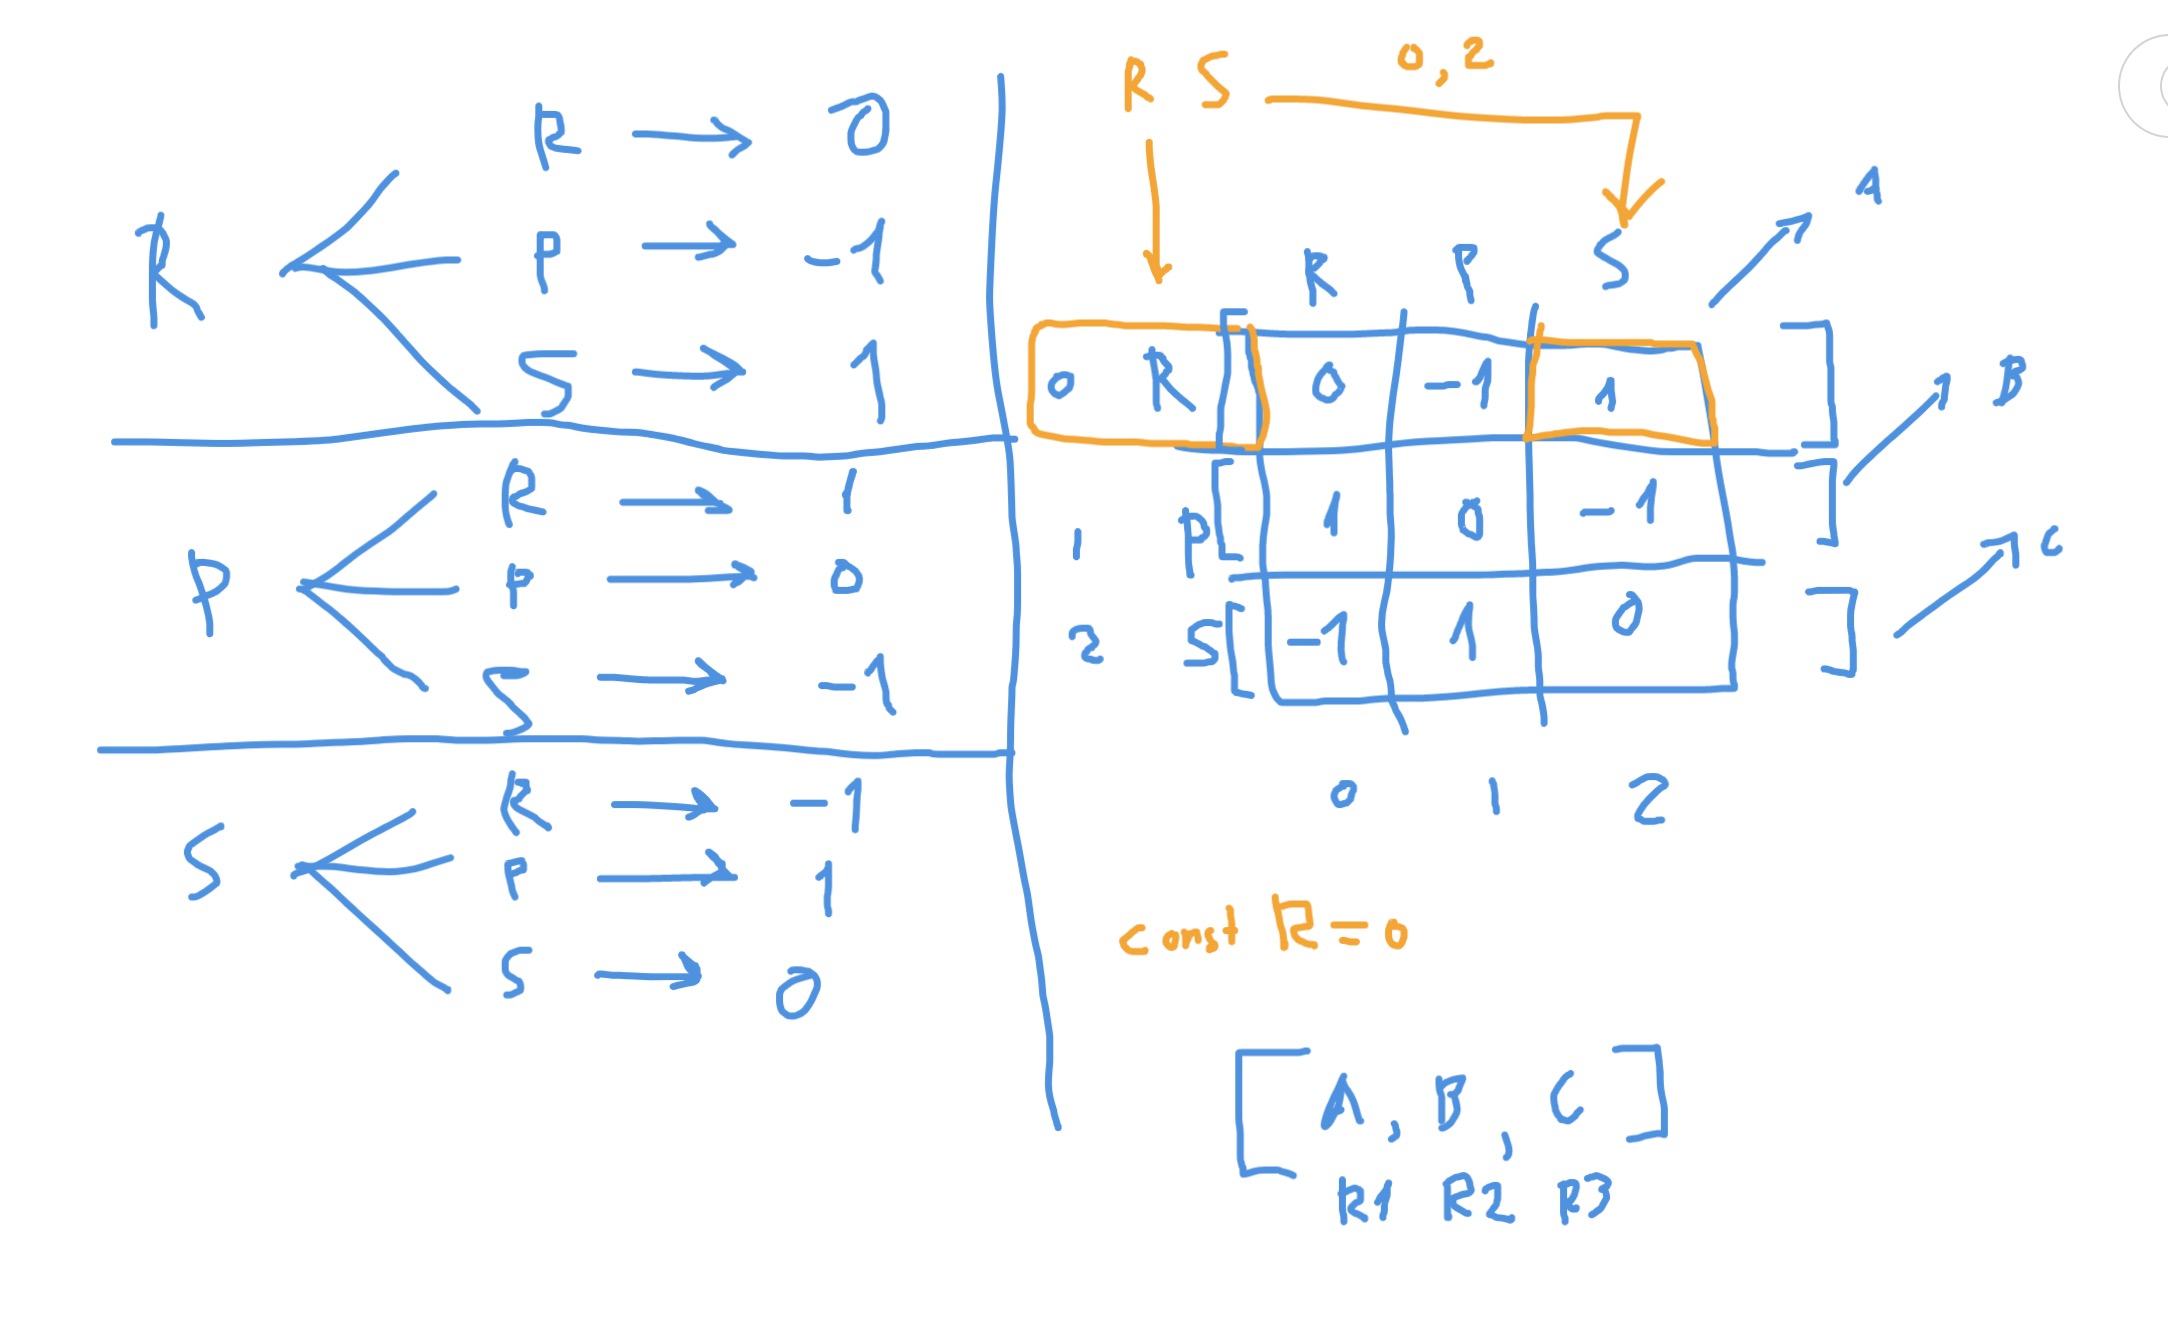 R
R → 0
P → -1
S → 1
P
R → 1
P → 0
S → -1
S
R → -1
P → 1
S → 0
R S → 0,2
R P S
0 R [ 0 -1 1 ] → A
1 P [ 1 0 -1 ] → B
2 S [ -1 1 0 ] → C
0 1 2
const R = 0
[ A , B , C ]
R1 R2 R3